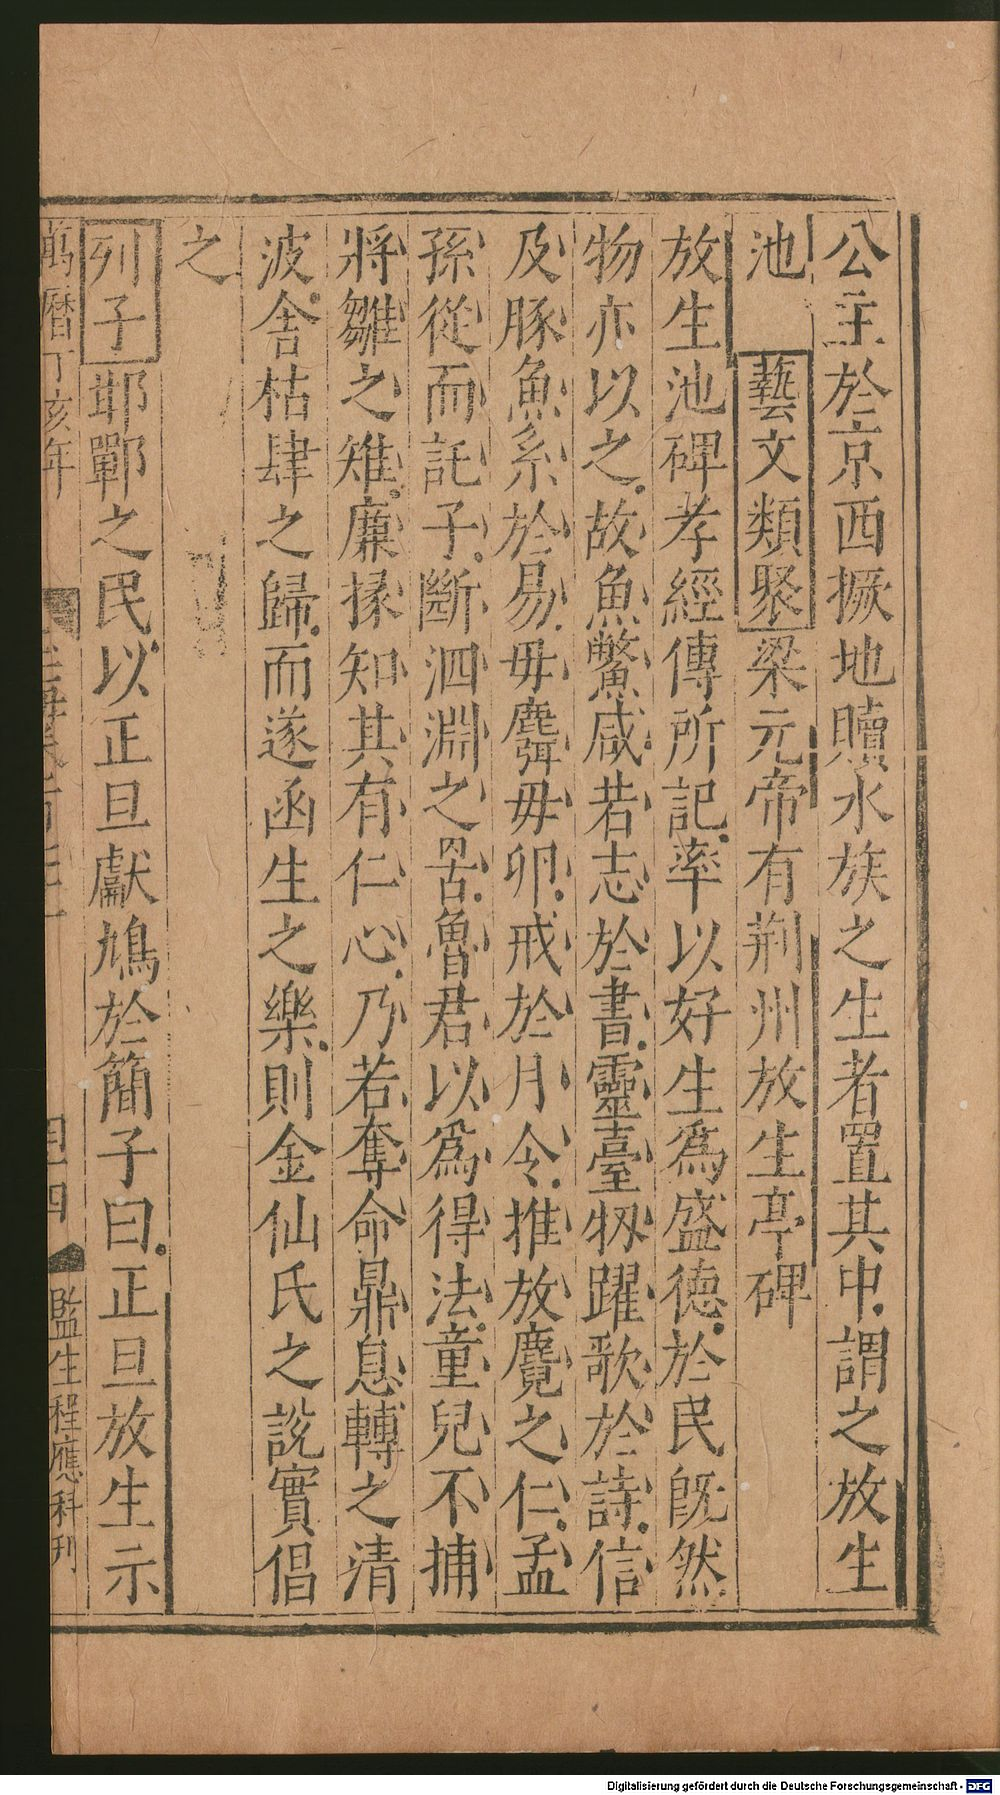 公主於京西撅地贖水族之生者置其中謂之放生
池 藝文類聚梁元帝有荆州放生亭碑
放生池碑孝經傳所記率以好生爲盛德於民既然
物亦以之故魚鼈咸若志於書靈臺牣躍歌於詩信
及豚魚系於易毋麛毋卵戒於月令推放麑之仁孟
孫從而託子斷泗淵之罟魯君以爲得法童兒不捕
將雛之雉廉掾知其有仁心乃若奪命鼎息轉之清
波舍枯肆之歸而遂函生之樂則金仙氏之説實倡
之
列子邯鄲之民以正旦獻鳩於簡子曰正旦放生示
萬曆丁亥年 監生程應科刊
Digitalisierung gefördert durch die Deutsche Forschungsgemeinschaft - DFG